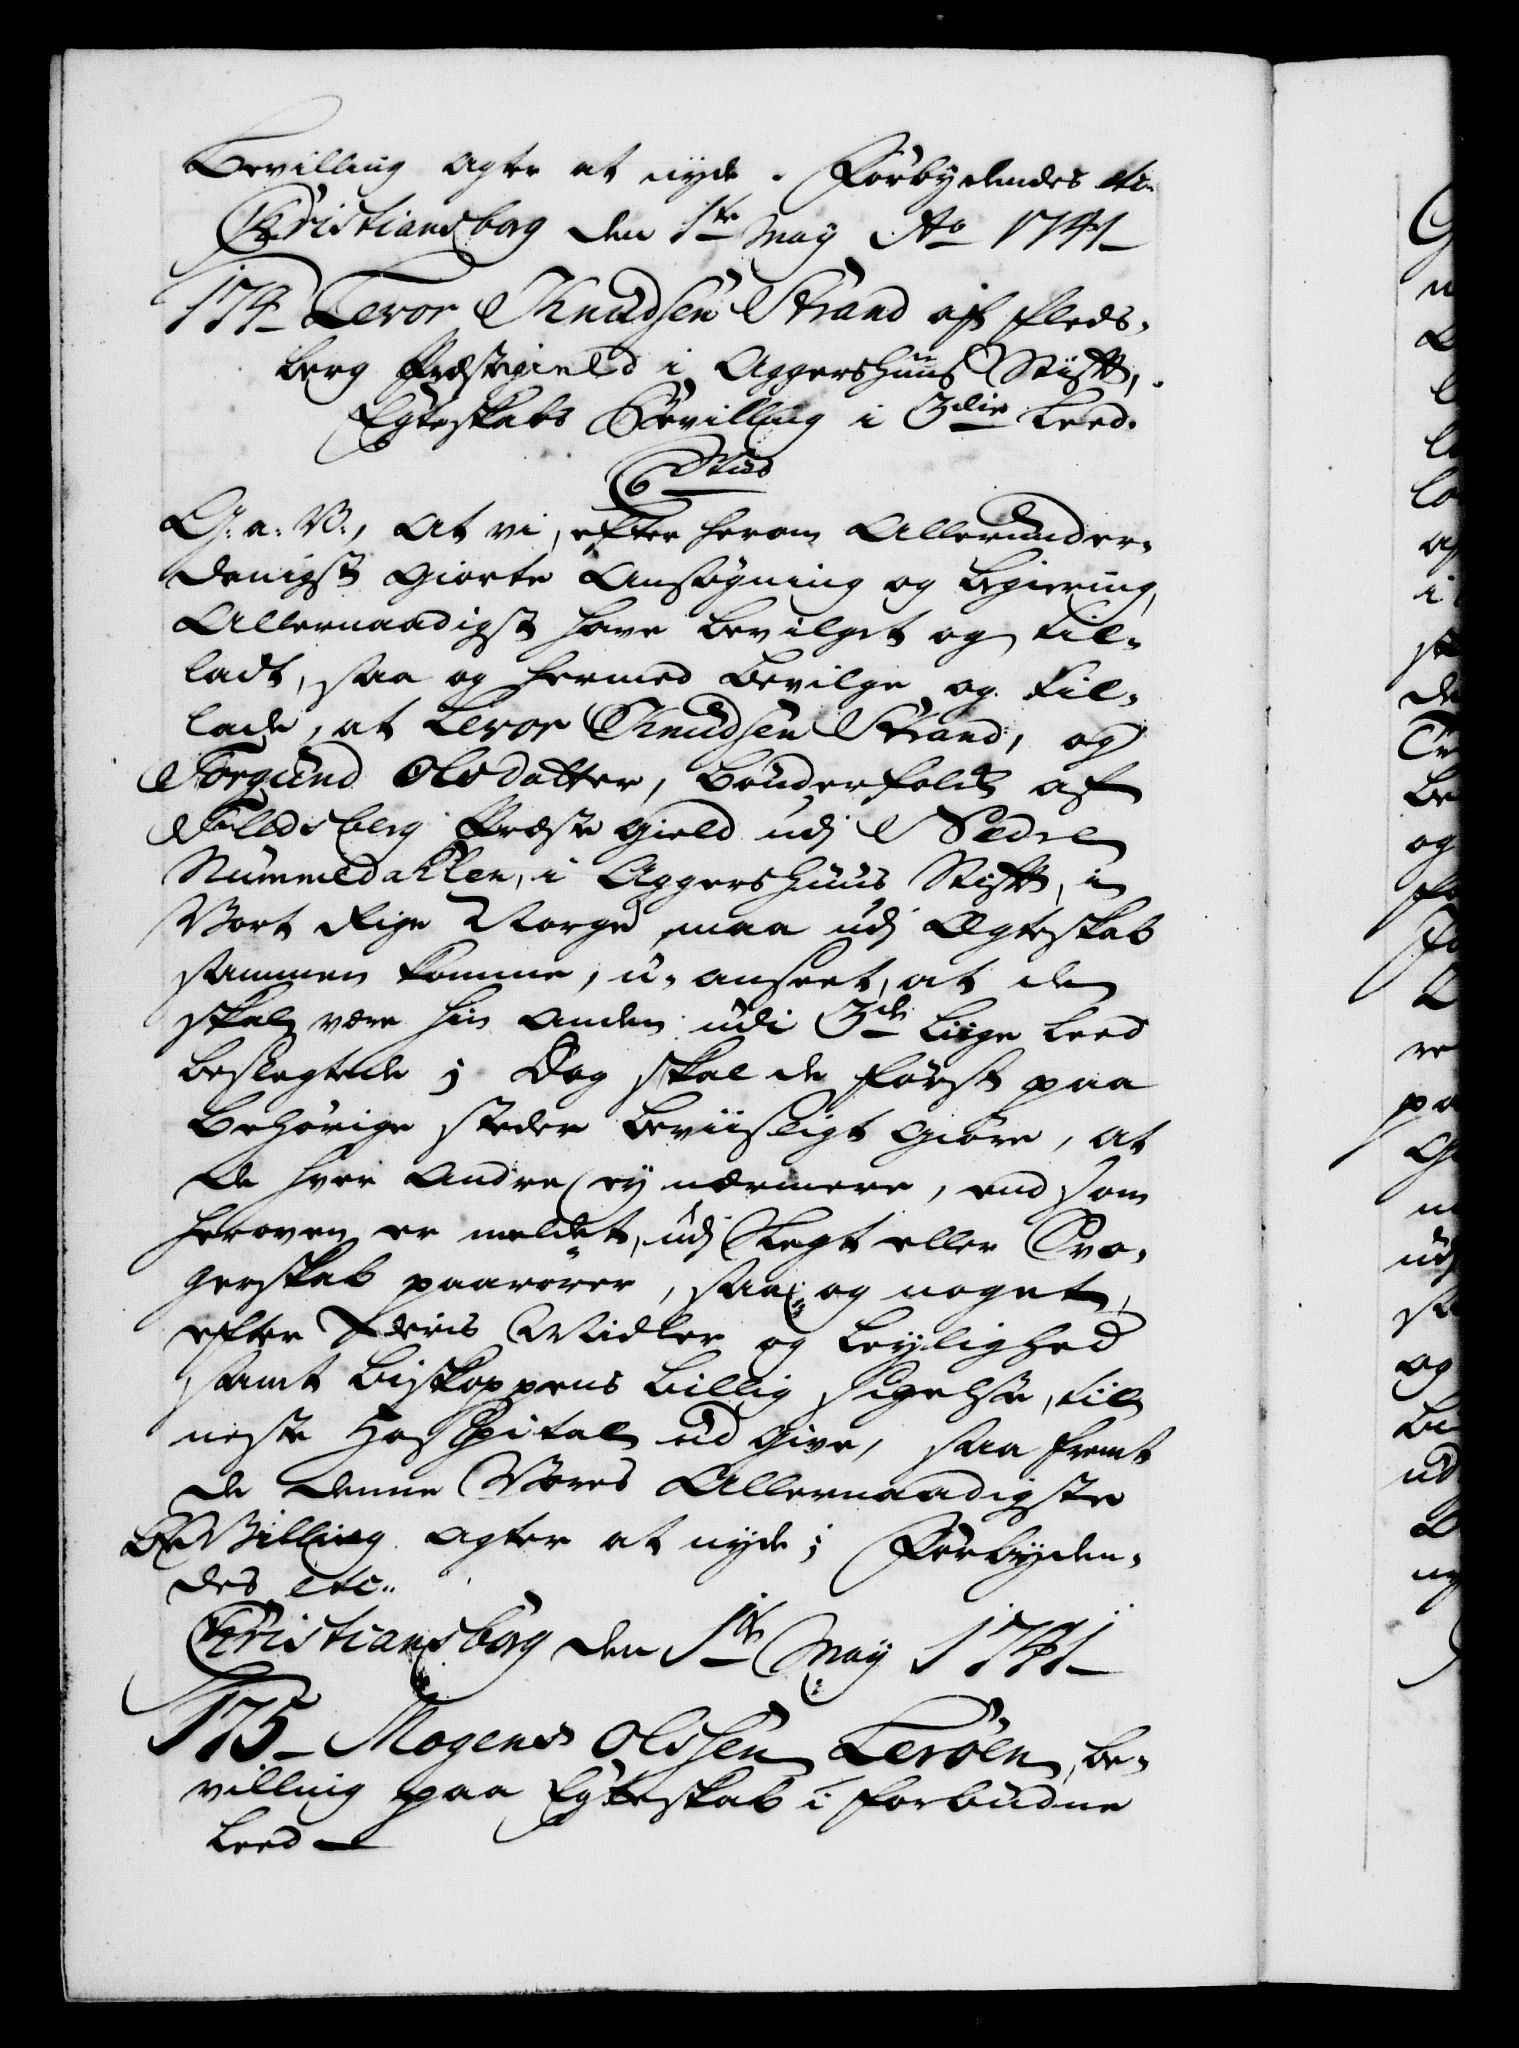 Bevilling agter at nyde. Forbydendes etc.
Christiansborg den 1te May Ao 1741
174 Levor Knudsen Strand af Fleds-
berg Præstegield i Aggershuus Stift,
Egteskabs Bevilling i 3die Leed.
G: a: V:, at vi, efter herom Allerunder-
danigst giorte Ansøgning og Begiering,
Allernaadigst have bevilget og til-
ladt, saa og hermed bevilge og til-
lade, at Levor Knudsen Strand, og
Torgund Olsdatter, Bønderfolk af
Fledsberg Præste Gield udj Nedre
Nummedahlen, i Aggershuus Stift, i
Vort Rige Norge, maa udj Ægteskab
sammen komme, u-anseet, at de
skal være hin anden udi 3de Liige Leed
beslegtede; Dog skal de først paa
behørige steder beviisligt giøre, at
de hver andre ey nærmere, end som
heroven er meldet, udj Slegt eller Svo-
gerskab paarører, saa og noget,
efter deris Midler og Leylighed
samt Biskoppens billig sigelse, til
neste Hospital ud give, saa fremt
de denne Vores Allernaadigste
Bevilling agter at nyde; Forbyden-
des etc..
Christiansborg den 1te May 1741
175 Mogens Olssen Lerøen, Be-
villing paa Egteskab i forbudne
Leed